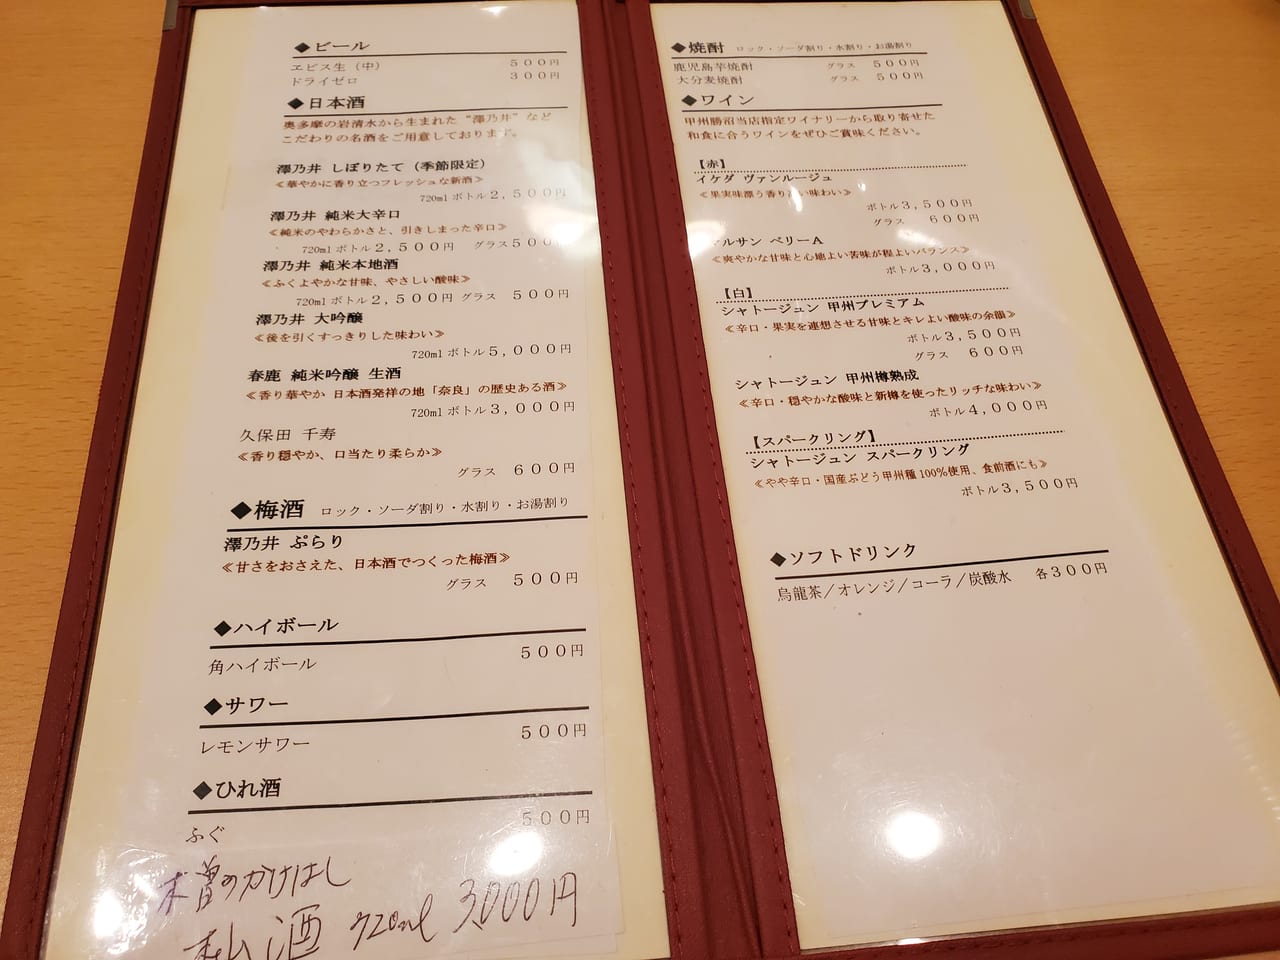 ◆ビール
ヱビス生（中） ５００円
ドライゼロ ３００円
◆日本酒
奥多摩の岩清水から生まれた“澤乃井”など
こだわりの名酒をご用意しております。
澤乃井 しぼりたて（季節限定）
≪華やかに香り立つフレッシュな新酒≫
720ml ボトル２,５００円
澤乃井 純米大辛口
≪純米のやわらかさと、引きしまった辛口≫
720ml ボトル２,５００円 グラス５００円
澤乃井 純米本地酒
≪ふくよやかな甘味、やさしい酸味≫
720ml ボトル２,５００円 グラス ５００円
澤乃井 大吟醸
≪後を引くすっきりした味わい≫
720ml ボトル５,０００円
春鹿 純米吟醸 生酒
≪香り華やか 日本酒発祥の地「奈良」の歴史ある酒≫
720ml ボトル３,０００円
久保田 千寿
≪香り穏やか、口当たり柔らか≫
グラス ６００円
◆梅酒 ロック・ソーダ割り・水割り・お湯割り
澤乃井 ぷらり
≪甘さをおさえた、日本酒でつくった梅酒≫
グラス ５００円
◆ハイボール
角ハイボール ５００円
◆サワー
レモンサワー ５００円
◆ひれ酒
ふぐ ５００円
木曽のかけはし
酒 720ml 3,000円
◆焼酎 ロック・ソーダ割り・水割り・お湯割り
鹿児島芋焼酎 グラス ５００円
大分麦焼酎 グラス ５００円
◆ワイン
甲州勝沼当店指定ワイナリーから取り寄せた
和食に合うワインをぜひご賞味ください。
【赤】
イケダ ヴァンルージュ
≪果実味漂う香り高い味わい≫
ボトル３,５００円
グラス ６００円
ルサン ベリーＡ
≪爽やかな甘味と心地よい苦味が程よいバランス≫
ボトル３,０００円
【白】
シャトージュン 甲州プレミアム
≪辛口・果実を連想させる甘味とキレよい酸味の余韻≫
ボトル３,５００円
グラス ６００円
シャトージュン 甲州樽熟成
≪辛口・穏やかな酸味と新樽を使ったリッチな味わい≫
ボトル４,０００円
【スパークリング】
シャトージュン スパークリング
≪やや辛口・国産ぶどう甲州種 100%使用、食前酒にも≫
ボトル３,５００円
◆ソフトドリンク
烏龍茶／オレンジ／コーラ／炭酸水 各３００円